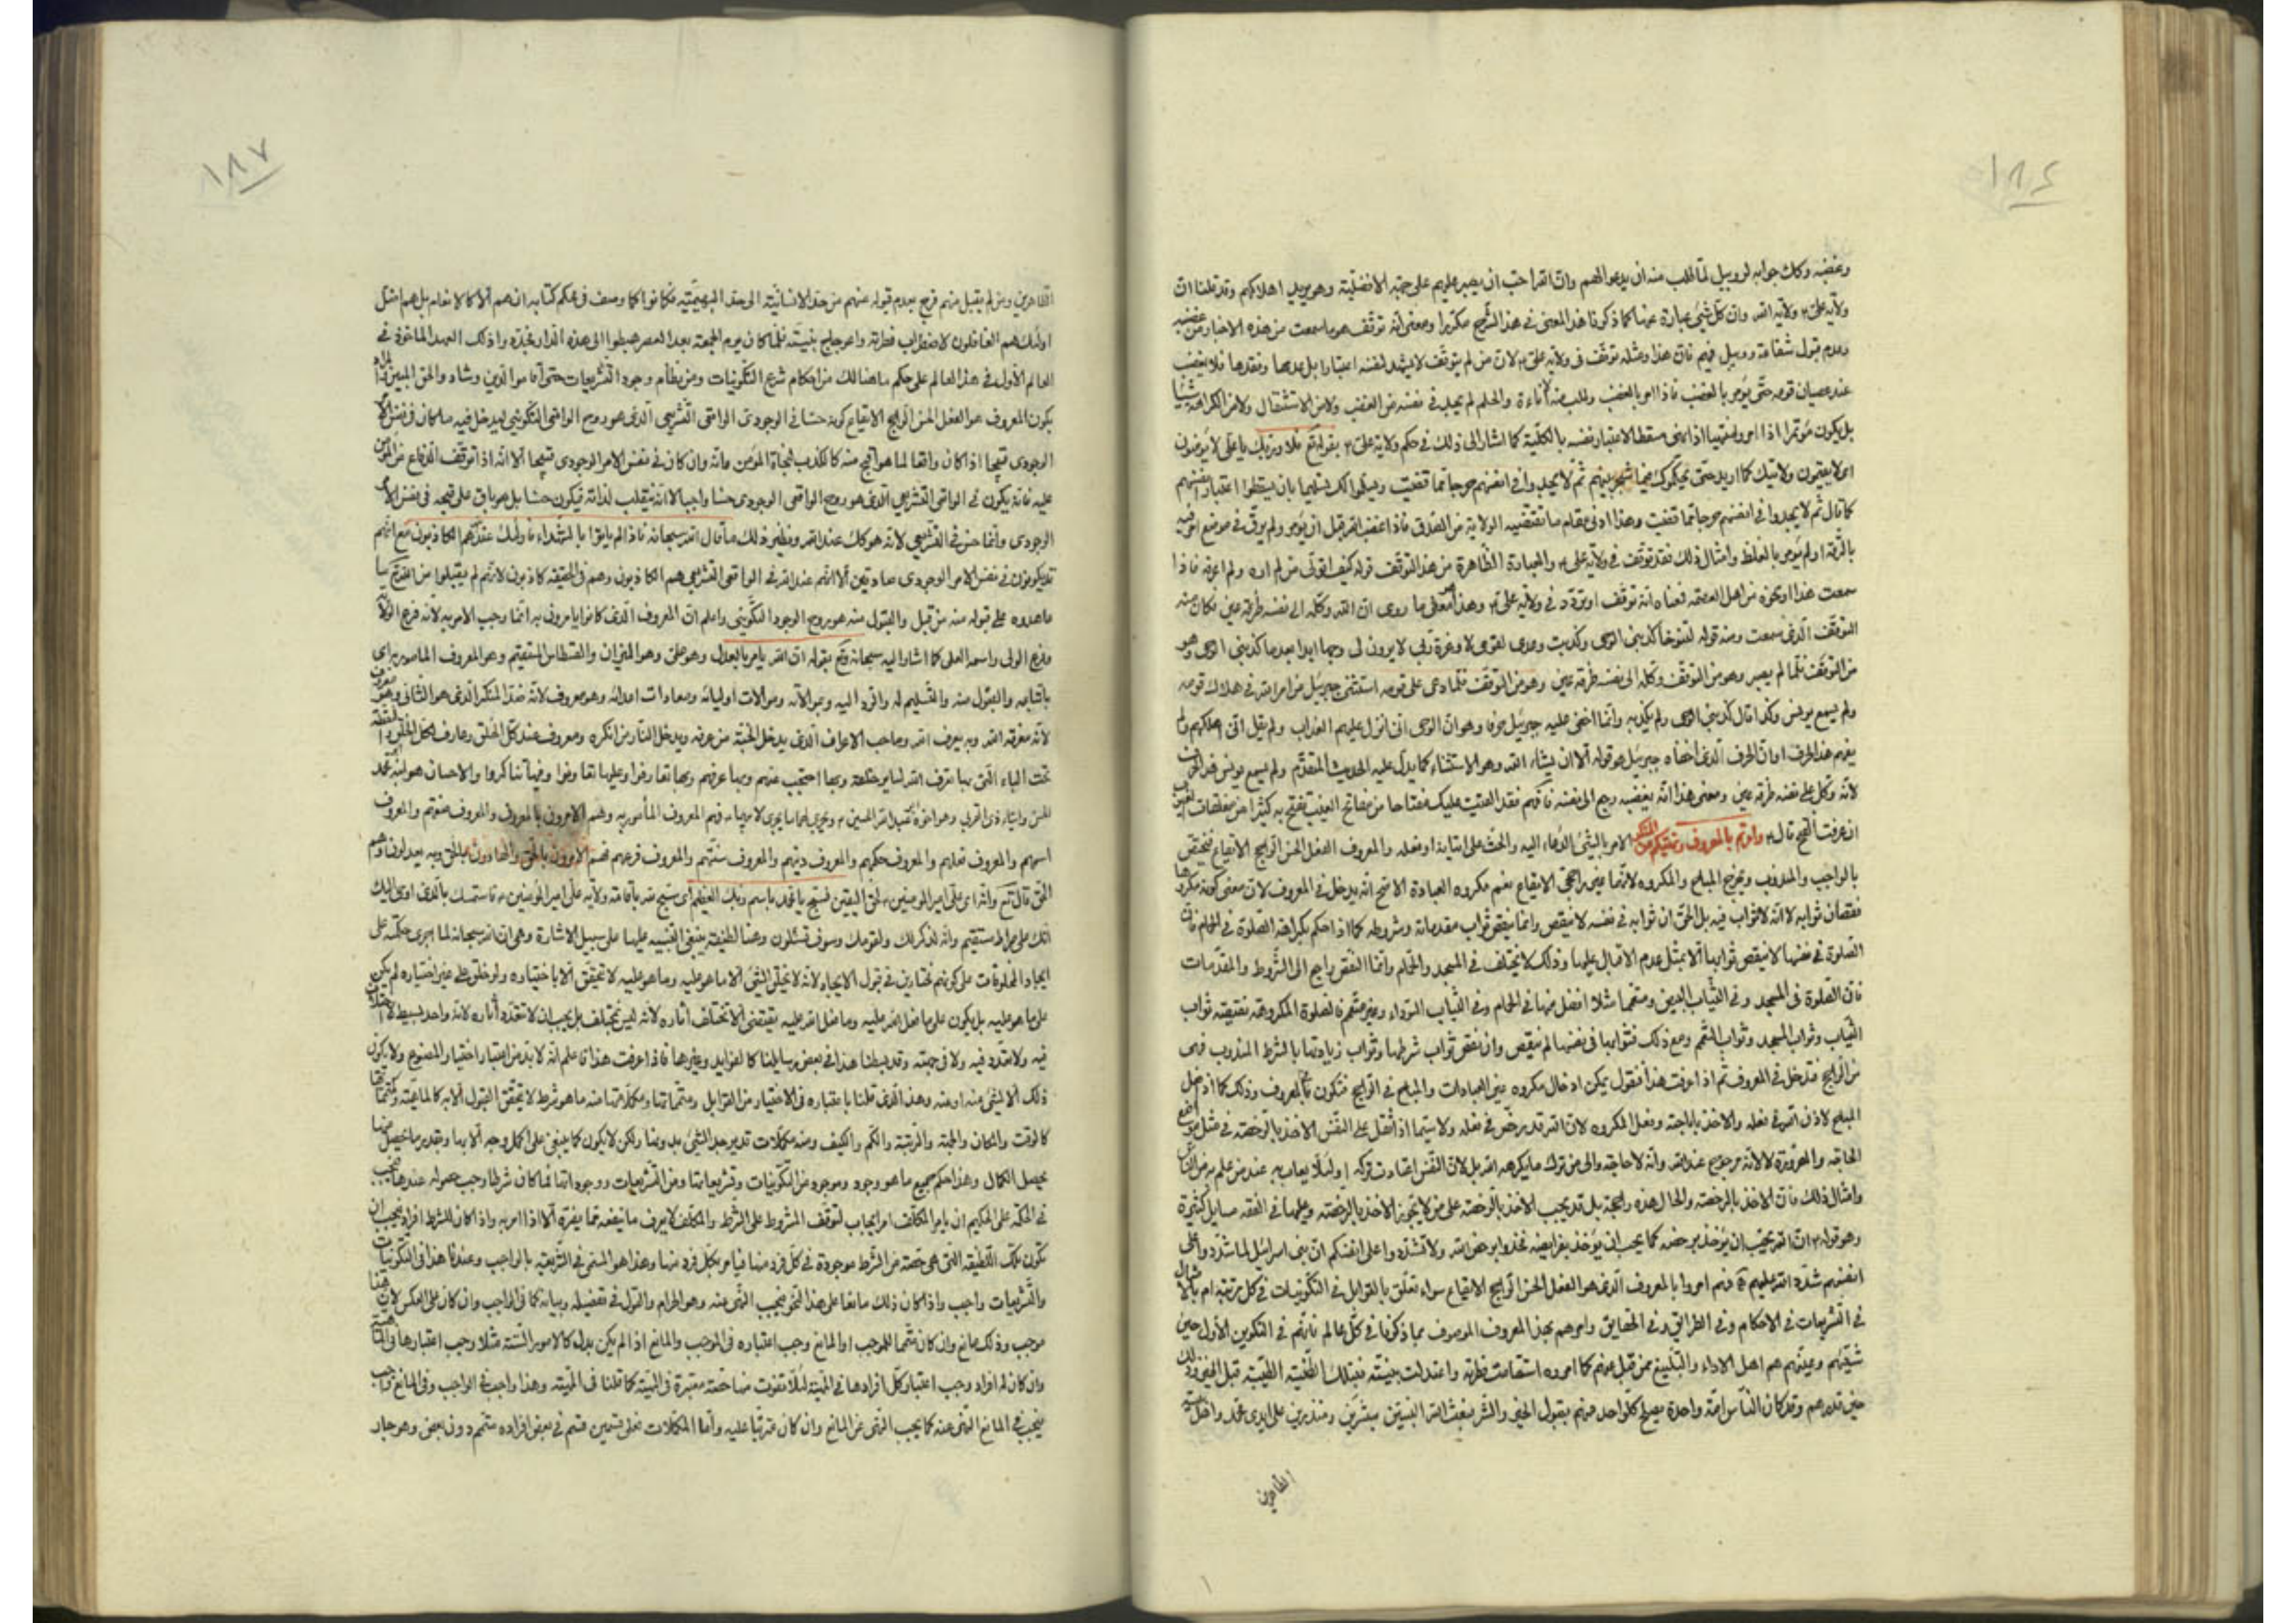 ١٨٤
وغضبه وكك جوابه لروبيل لما طلب منه ان يدعو لهم وان الله احب ان يصبر عليهم على جهة الافضلية وهو يريد اهلاكهم وقد قلنا ان
ولاية علي ولاية الله وان كل شئ عبارة عنها كما ذكرنا هذا المعنى في هذا الشرح مكررا ومعنى انه توقف هو ما سمعت من هذه الاخبار من غضبه
وعدم قبول شفاعة روبيل فيهم فان هذا ومثله توقف في ولاية علي لان من لم يتوقف لا يشهد لنفسه اعتبارا بل عدمها وفقدها فلا يغضب
عند عصيان قومه حتى يؤمر بالغضب فاذا امر بالغضب وطلب منه الاناءة والحلم لم يجد في نفسه من الغضب ولا من الاستثقال ولا من الكراهة شيئا
بل يكون مؤتمرا اذا امر ومنتهيا اذا نهى مسقطا لاعتبار نفسه بالكلية كما اشار الى ذلك في حكم ولاية علي بقوله تع فلا وربك يا علي لا يؤمنون
اي لا يعتبرون ولايتك كما اريد حتى يحكموك فيما شجر بينهم ثم لا يجدوا في انفسهم حرجا مما قضيت ويسلموا لك تسليما بان يسقطوا اعتبار انفسهم
كما قال ثم لا يجدوا في انفسهم حرجا مما قضيت وهذا ادنى مقام ما تقتضيه الولاية من الصدق فاذا غضب لله قبل ان يؤمر ولم يرق في موضع امر فيه
بالرقة او لم يؤمر بالغلظ وامثال ذلك فقد توقف في ولاية علي والعبارة الظاهرة من هذا التوقف قوله كيف اتولى من لم اره ولم اعرفه فاذا
سمعت هذا او نحوه من اهل العصمة فمعناه انه توقف او تردد في ولاية علي وهذا معنى ما روى ان الله وكله الى نفسه طرفة عين فكان منه
التوقف الذي سمعت ومنه قوله لتنوخا كذبني الوحى وكذبت وعدى لقومى لا وعزة ربي لا يرون لى وجها ابدا بعد ما كذبني الوحى وهو
من التوقف فلما لم يصبر وهو من التوقف وكله الى نفسه طرفة عين وهو من التوقف فلما دعى على قومه استثنى جبرئيل من امر الله في هلاك قومه
ولم يسمع يونس وكذا قال كذبني الوحى ولم يكذبه وانما اخفى عليه جبرئيل حرفا وهو ان الوحى انى انزل عليهم العذاب ولم يقل انى مهلكهم ولم
يفهم هذا الحرف او ان الحرف الذي اخفاه جبرئيل هو قوله الا ان يشاء الله وهو الاستثناء كما يدل عليه الحديث المتقدم ولم يسمع يونس هذا الحرف
لانه وكل على نفسه طرفة عين ومعنى هذا انه بغضبه رجع الى نفسه فافهم فقد القيت عليك مفتاحا من مفاتح الغيب تفتح به كثيرا من مغلقات الغيب
ان عرفت الفتح قال وامرتم بالمعروف ونهيتم عن المنكر الامر بالشئ الدعاء اليه والحث على اتيانه او فعله والمعروف الفعل الحسن الراجح الايقاع فيختص
بالواجب والمندوب ويخرج المباح والمكروه لانهما غير راجحى الايقاع نعم مكروه العبادة الاصح انه يدخل في المعروف لان معنى كونه مكروها
نقصان ثوابه لا انه لا ثواب فيه بل الحق ان ثوابه في نفسه لا ينقص وانما ينقص ثواب مقدماته وشروطه كما اذا حكم بكراهة الصلوة في الحمام فان
الصلوة في نفسها لا ينقص ثوابها الا بمثل عدم الاقبال عليها وذلك لا يختلف في المسجد والحمام وانما النقص راجع الى الشروط والمقدمات
فان الصلوة في المسجد وفي الثياب البيض ومتعمما مثلا افضل منها في الحمام وفي الثياب السوداء وغير متعمم فالصلوة المكروهة نقيصته ثواب
الثياب وثواب المسجد وثواب التعمم ومع ذلك فثوابها في نفسها لم ينقص وان نقص ثواب شرطها وثواب زيادتها بالشرط المندوب فهى
من الراجح فتدخل في المعروف ثم اذا عرفت هذا فنقول يمكن ادخال مكروه غير العبادات والمباح في الراجح فتكون بالمعروف وذلك كما اذا فعل
المباح لاذن الله في فعله والاخذ باباحته وفعل المكروه لان الله قد رخص في فعله ولا سيما اذا ثقل على النفس الاخذ بالرخصة في مثل مواضع
الحاجة والضرورة لا لانه مرجوح عند الله وانه لا حاجة والى من ترك ما يكرهه الله بل لان النفس اعتادت تركه او لئلا يعاب به عند من علم به من الناس
وامثال ذلك فان الاخذ بالرخصة والحال هذه راجحة بل قد يجب الاخذ بالرخصة على من لا يجوز الاخذ بالرخصة وعليها في الفقه مسايل كثيرة
وهو قوله ان الله يحب ان يؤخذ برخصه كما يحب ان يؤخذ بفرايضه فخذوا برخص الله ولا تشددوا على انفسكم ان بنى اسرائيل لما شددوا على
انفسهم شدد الله عليهم فهم امروا بالمعروف الذي هو الفعل الحسن الراجح الايقاع سواء تعلق بالقوابل في التكوينيات في كل مرتبة ام بالامتثال
في التشريعات في الاحكام وفي الطرائق وفي الحقايق وامرهم بهذا المعروف الموصوف بما ذكرنا في كل عالم فانهم في التكوين الاول حين
شيعتهم ومحبتهم هم اهل الاداء والتبليغ فمن قبل عنهم كما امروه استقامت فطرته واعتدلت بنيته فبتلك الطينة الطيبة قبل الخير وذلك
حين قدرهم وقد كان الناس امة واحدة يصلح كل واحد منهم بقبول الخير والشر فبعث الله النبيين مبشرين ومنذرين على ايدى محمد واهل بيته
الطاهرين
١٨٧
الطاهرين ومن لم يقبل منهم خرج بعدم قوله عنهم من حد الانسانية الى حد البهيمية فكانوا كما وصف في محكم كتابه ان هم الا كالانعام بل هم اضل
اولئك هم الغافلون لاضطراب فطرته واعوجاج بنيته فلما كان يوم الجمعة بعد العصر هبطوا الى هذه الدار فخبدوا ذلك العهد الماخوذ في
العالم الاول في هذا العالم على حكم ما هنالك من احكام شرع التكوينيات ومن نظام وجود التشريعيات حتى اقاموا الدين وشاد والحق المبين
يكون المعروف هو الفعل الحسن الراجح الايقاع كونه حسنا في الوجودى الواقعى التشريعى الذي هو روح الواقعى التكوينى ليدخل فيه ما كان في نفس الامر
الوجودى قبيحا اذا كان واقعا لما هو اقبح منه كالكذب لنجاة المؤمن فانه وان كان في نفس الامر الوجودى قبيحا الا انه اذا توقف الدفاع عن المؤمن
عليه فانه يكون في الواقعى التشريعى الذي هو روح الواقعى الوجودى حسنا واجبا لا انه ينقلب لذاته فيكون حسنا بل هو باق على قبحه في نفس الامر
الوجودى وانما حسن في التشريعى لانه هو كك عند الله ونظير ذلك ما قال الله سبحانه فاذ لم يأتوا بالشهداء فاولئك عند الله هم الكاذبون مع انهم
قد يكونون في نفس الامر الوجودى صادقين الا انهم عند الله في الواقعى التشريعى هم الكاذبون وهم في الحقيقة كاذبون لانهم لم يقبلوا من الله
ما حدده على قوله منه من قبل والقبول منه هو روح الوجود التكوينى واعلم ان المعروف الذي كانوا يامرون به انما وجب الامر به لانه فرع الولاية
وفرع الولى واسمه العلى كما اشار اليه سبحانه وتع بقوله ان الله يامر بالعدل وهو على وهو الميزان والقسطاس المستقيم وهو المعروف المامور به اى
باتباعه والقبول منه والتسليم له والرد اليه وبموالاته وموالات اوليائه ومعادات اعدائه وهو معروف لانه ضد المنكر الذي هو الثانى وهو معروف
لانه معرفة الله وبه يعرف الله وصاحب الاعراف الذي يدخل الجنة من عرفه ويدخل النار من انكره ومعروف عند كل الخلق وعارف لكل الخلق
تحت الباء التى بها عرف الله لساير خلقه وبها احتجب عنهم وبها عرفهم وبها تعارفوا وعليها تعارفوا وفيها تناكروا والاحسان هو ابنه محمد
الحسن وايتاء ذى القربى وهو اخوه الحسين ويجرى فيهما ما يجرى لابيهما فهم المعروف المأمور به وهم الامرون بالمعروف والمعروف صنعهم والمعروف
اسمهم والمعروف فعلهم والمعروف حكمهم والمعروف دينهم والمعروف سنتهم والمعروف فرعهم فهم الامرون بالحق والهادون بالحق وبه يعدلون وهم
الحق قال تع وانه اى على امير المومنين لحق اليقين فسبح يا محمد باسم ربك العظيم اى سبح به باقامة ولاية على امير المومنين فاستمسك بالذي اوحى اليك
انك على صراط مستقيم وانه لذكر لك ولقومك وسوف تسئلون وهنا لطيفة ينبغى التنبيه عليها على سبيل الاشارة وهى ان الله سبحانه لما اجرى حكمته على
ايجاد المخلوقات على كونهم مختارين في قبول الايجاد لانه لا يخلق الشئ الا ما هو عليه وما هو عليه لا يتحقق الا باختياره ولو خلق على غير اختياره لم يكن
على ما هو عليه بل يكون على ما فعل الله عليه وما فعل الله عليه يقتضى الا تختلف آثاره لانه ليس بمختلف بل يجب ان لا تتعدد آثاره لانه واحد بسيط لا اختلاف
فيه ولا تعدد فيه ولا في جهته وقد بسطنا هذا في بعض رسايلنا كالفوايد وغيرها فاذا عرفت هذا فاعلم انه لا بد من اعتبار اختيار المصنوع ولا يكون
ذلك الا لشئ منه او عنه وهذا الذي قلنا باعتباره في الاختيار من القوابل ومتمماتها ومكملاتها منه ما هو شرط لا يتحقق القبول الا به كالماهية وكمتمماتها
كالوقت والمكان والجهة والرتبة والكم والكيف ومنه مكملات قد يوجد الشئ بدونها ولكن لا يكون كما ينبغى على اكمل وجه الا بها وبقدر ما يحصل منها
يحصل الكمال وهذا حكم جميع ما هو وجود وموجود من التكوينيات وتشريعاتها ومن التشريعات ووجوداتها فما كان شرطا وجب حصوله عندها فيجب
في الحكمة على الحكيم ان يامر المكلف امر ايجاب لتوقف المشروط على الشرط والمكلف لا يعرف ما ينفعه مما يضره الا اذا امر به واذا كان للشرط افراد يجب ان
تكون تلك اللطيفة التى هى حصة من الشرط موجودة في كل فرد منها فيامر بكل فرد منها وهذا هو المسمى في الشريعة بالواجب وعندنا هذا في التكوينيات
والتشريعات واجب واذا كان ذلك مانعا على هذا النحو فيجب النهى عنه وهو الحرام والقول في تفصيله وبيانه كما في الواجب وان كان على العكس لان هذا
موجب وذلك مانع وان كان متمما للموجب او المانع وجب اعتباره في الموجب والمانع اذا لم يكن بدله كالامور الستة مثلا وجب اعتبارها
وان كان له افراد وجب اعتبار كل افرادها في المهية لئلا تفوت منها حصة معتبرة في المهية كما قلنا في المهية وهذا واجب في الواجب وفي المانع واجب
فيجب في المانع النهى عنه كما يجب النهى عن المانع وان كان مترتبا عليه واما المكملات فعلى قسمين قسم في بعض افراده متمم دون بعض وهو جار